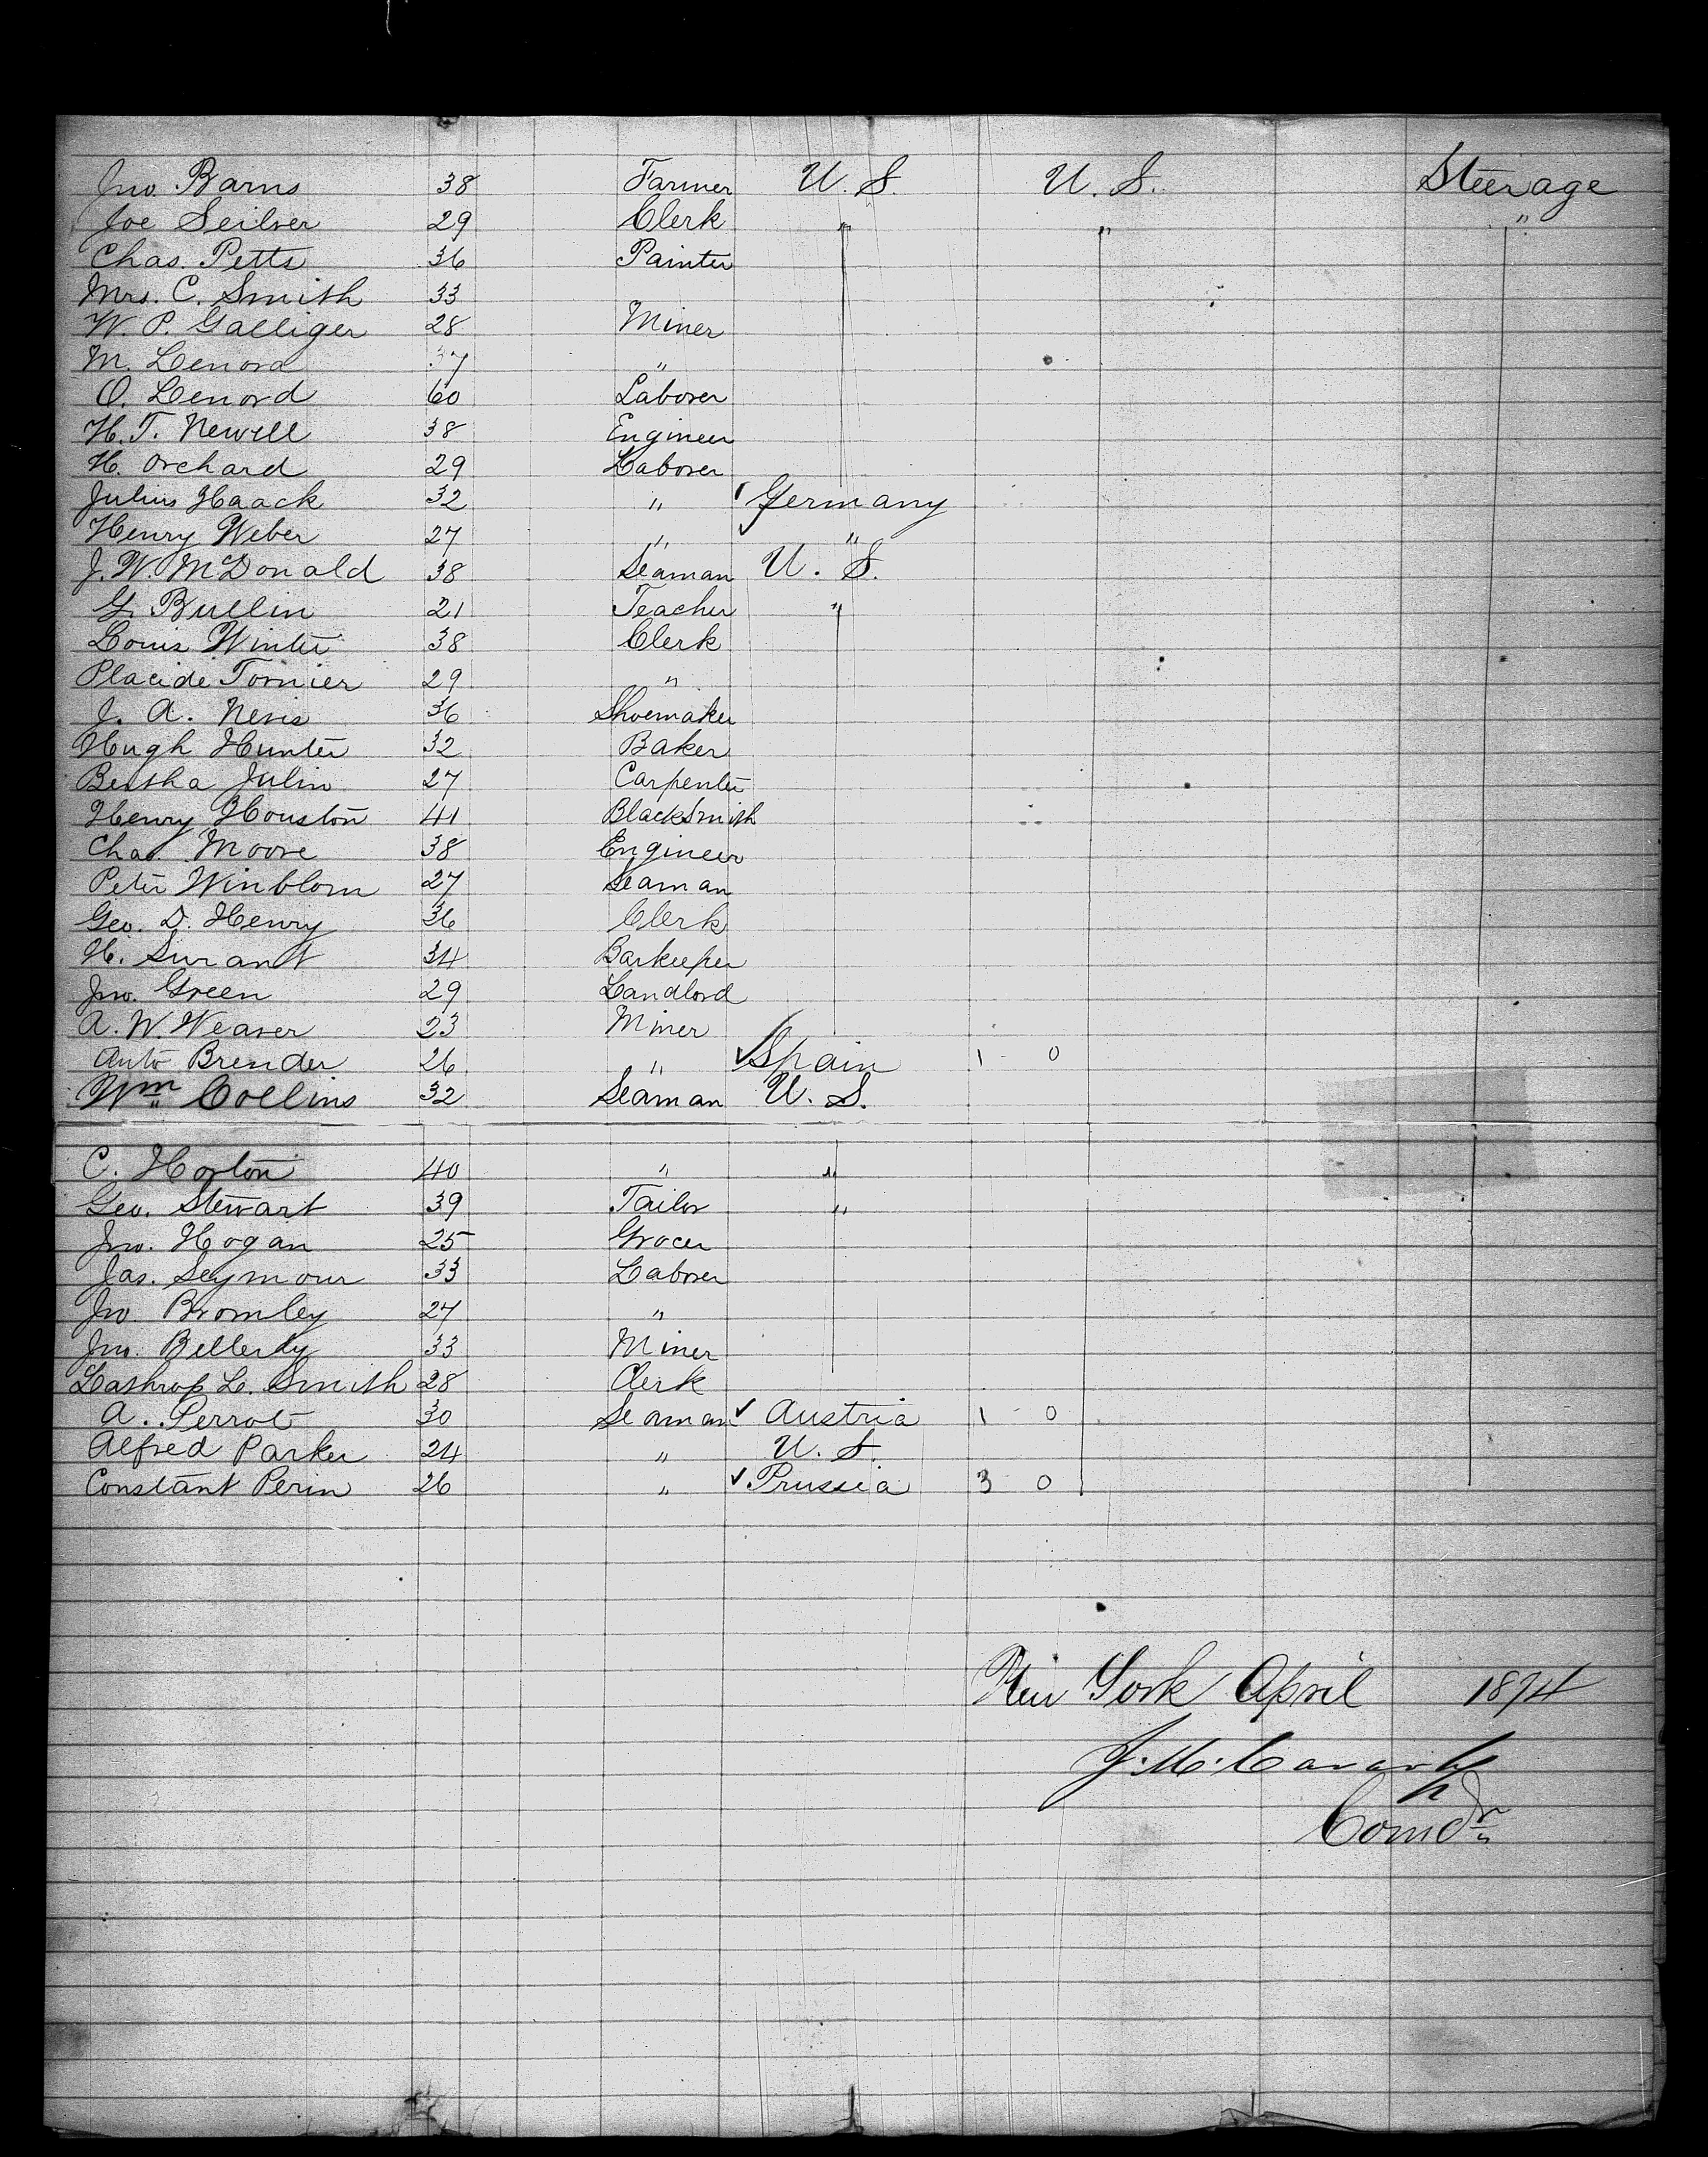 Jno. Barns 38 Farmer U. S. U. S. Steerage
Joe Seilver 29 Clerk " " "
Chas. Petts 36 Painter
Mrs. C. Smith 33
W. P. Galliger 28 Miner
M. Lenord 37 "
O. Lenord 60 Laborer
H. T. Newell 38 Engineer
H. Orchard 29 Laborer
Julius Haack 32 " Germany
Henry Weber 27 " "
J. W. McDonald 38 Seaman U. S.
G. Bullin 21 Teacher "
Louis Winter 38 Clerk
Placide Tornier 29 "
J. A. Nevis 36 Shoemaker
Hugh Hunter 32 Baker
Bertha Julin 27 Carpenter
Henry Houston 41 BlackSmith
Chas. Moore 38 Engineer
Peter Winblom 27 Seaman
Geo. D. Henry 36 Clerk
H. Surant 34 Barkeeper
Jno. Green 29 Landlord
A. W. Weaver 23 Miner
Auto Brender 26 " ✓ Spain 1 - 0
Wm Collins 32 Seaman U. S.
C. Horton 40 " "
Geo. Stewart 39 Tailor "
Jno. Hogan 25 Grocer
Jas. Seymour 33 Laborer
Jno Bromley 27 "
Jno. Bellerby 33 Miner
Lathrop L. Smith 28 Clerk
A. Perrot 30 Seaman ✓ Austria 1 - 0
Alfred Parker 24 " U. S.
Constant Perin 26 " ✓ Prussia 3 0
New York April 1874
J. M. Cavarly
Comdr